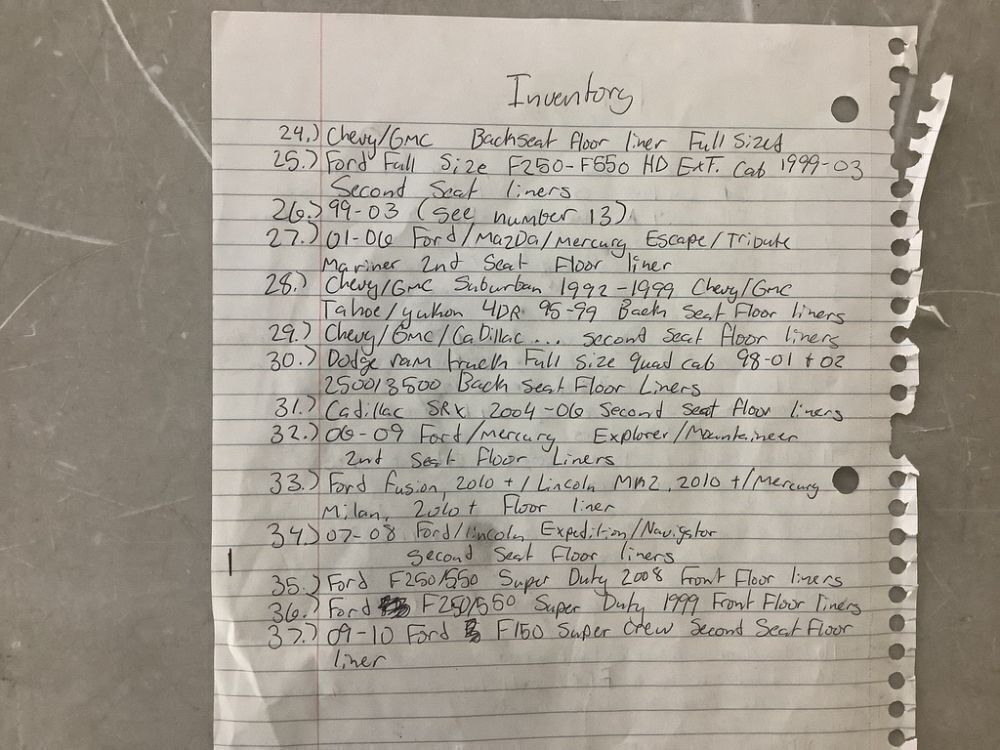 Inventory
24.) Chevy/GMC Backseat floor liner Full Sized
25.) Ford Full Size F250-F550 HD Ext. Cab 1999-03
Second Seat liners
26.) 99-03 (See number 13)
27.) 01-06 Ford/MazDa/Mercury Escape/Tribute
Mariner 2nd Seat Floor liner
28.) Chevy/GMC Suburban 1992-1999 Chevy/GMC
Tahoe/yukon 4DR 95-99 Back Seat Floor liners
29.) Chevy/GMC/CaDillac... second seat floor liners
30.) Dodge ram truck Full Size quad cab 98-01 + 02
2500/3500 Back Seat Floor Liners
31.) Cadillac SRX 2004-06 Second seat floor liners
32.) 06-09 Ford/Mercury Explorer/Mountaineer
2nd Seat Floor Liners
33.) Ford Fusion, 2010 + / Lincoln MKZ, 2010 +/Mercury
Milan, 2010 + Floor liner
34.) 07-08 Ford/lincoln Expedition/Navigator
Second Seat Floor liners
35.) Ford F250/550 Super Duty 2008 Front Floor liners
36.) Ford F250/550 Super Duty 1999 Front Floor liners
37.) 09-10 Ford F150 Super Crew Second Seat Floor
liner